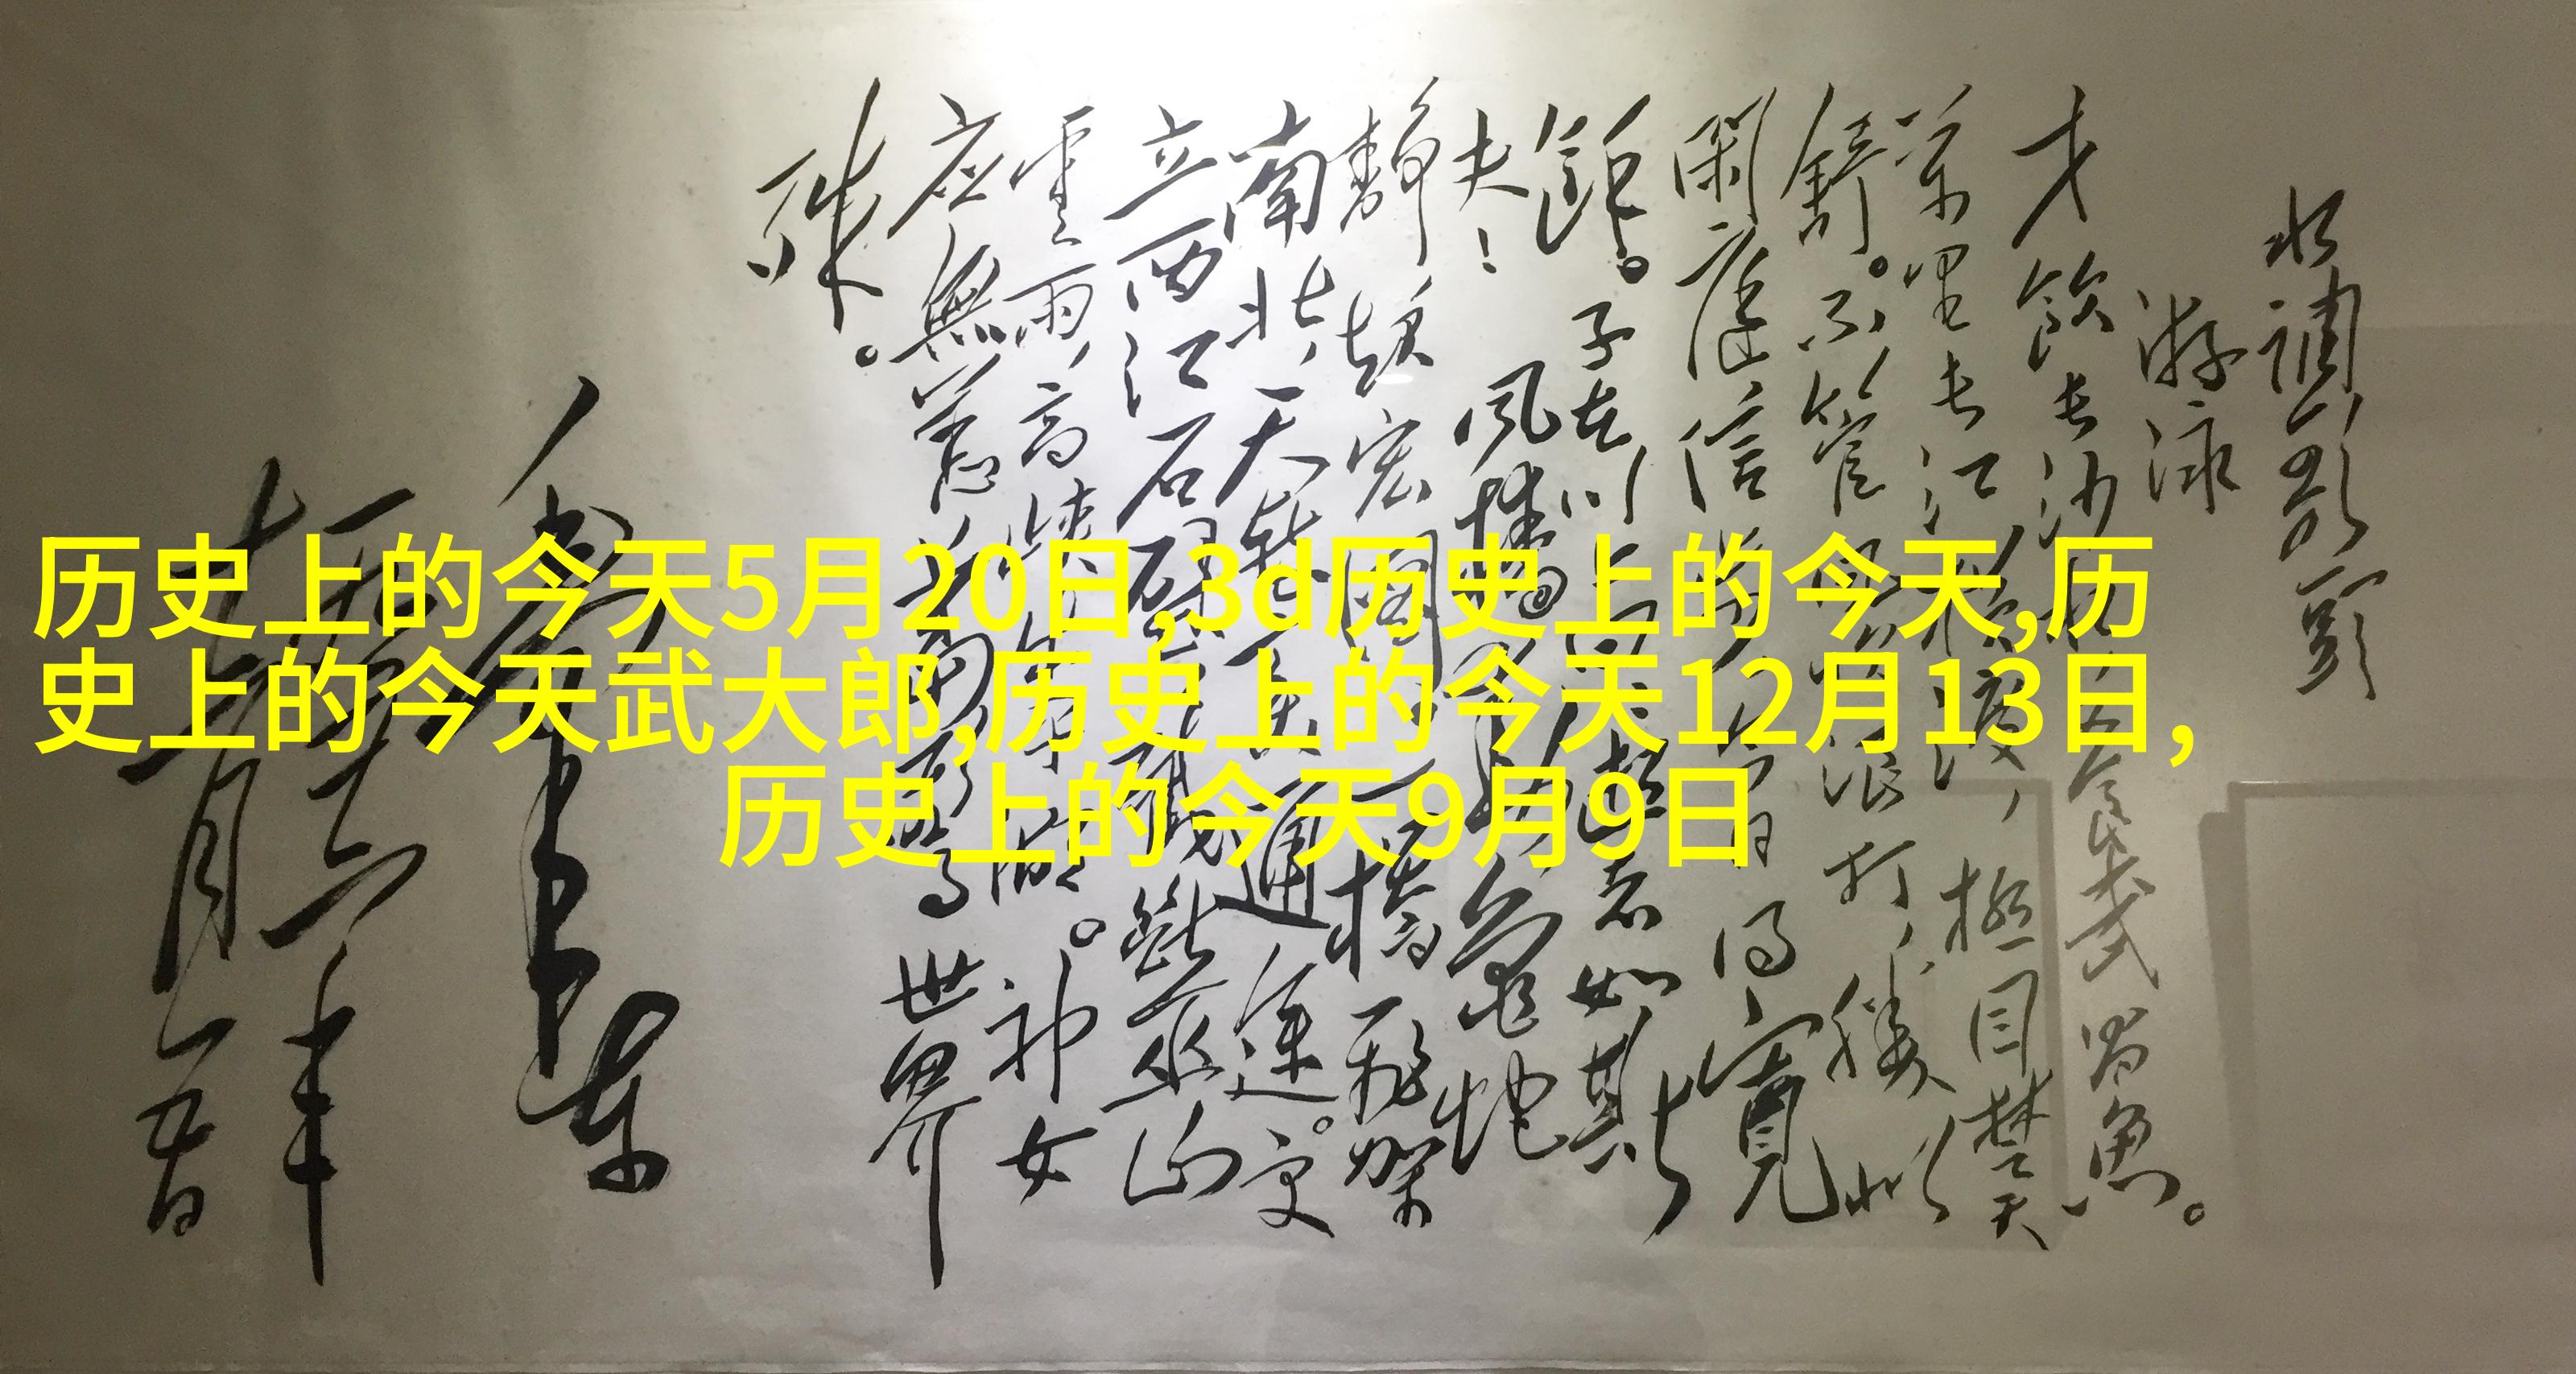 历史上的今天5月20日,3d历史上的今天,历
史上的今天武大郎,历史上的今天12月13日,
历史上的今天9月9日
水调歌頭
游泳
才飲长沙
万里长江横渡，极目楚天
舒。不管风吹浪打，胜似
闲庭信步，今日得寬
馀。子在川上曰：逝者如斯
夫！风樯动，龟蛇
靜，起宏圖。一橋飛架
南北，天堑变通途。更
立西江石壁，截断巫山
雲雨，高峡出平湖。神女
应無恙，当驚世界
殊。